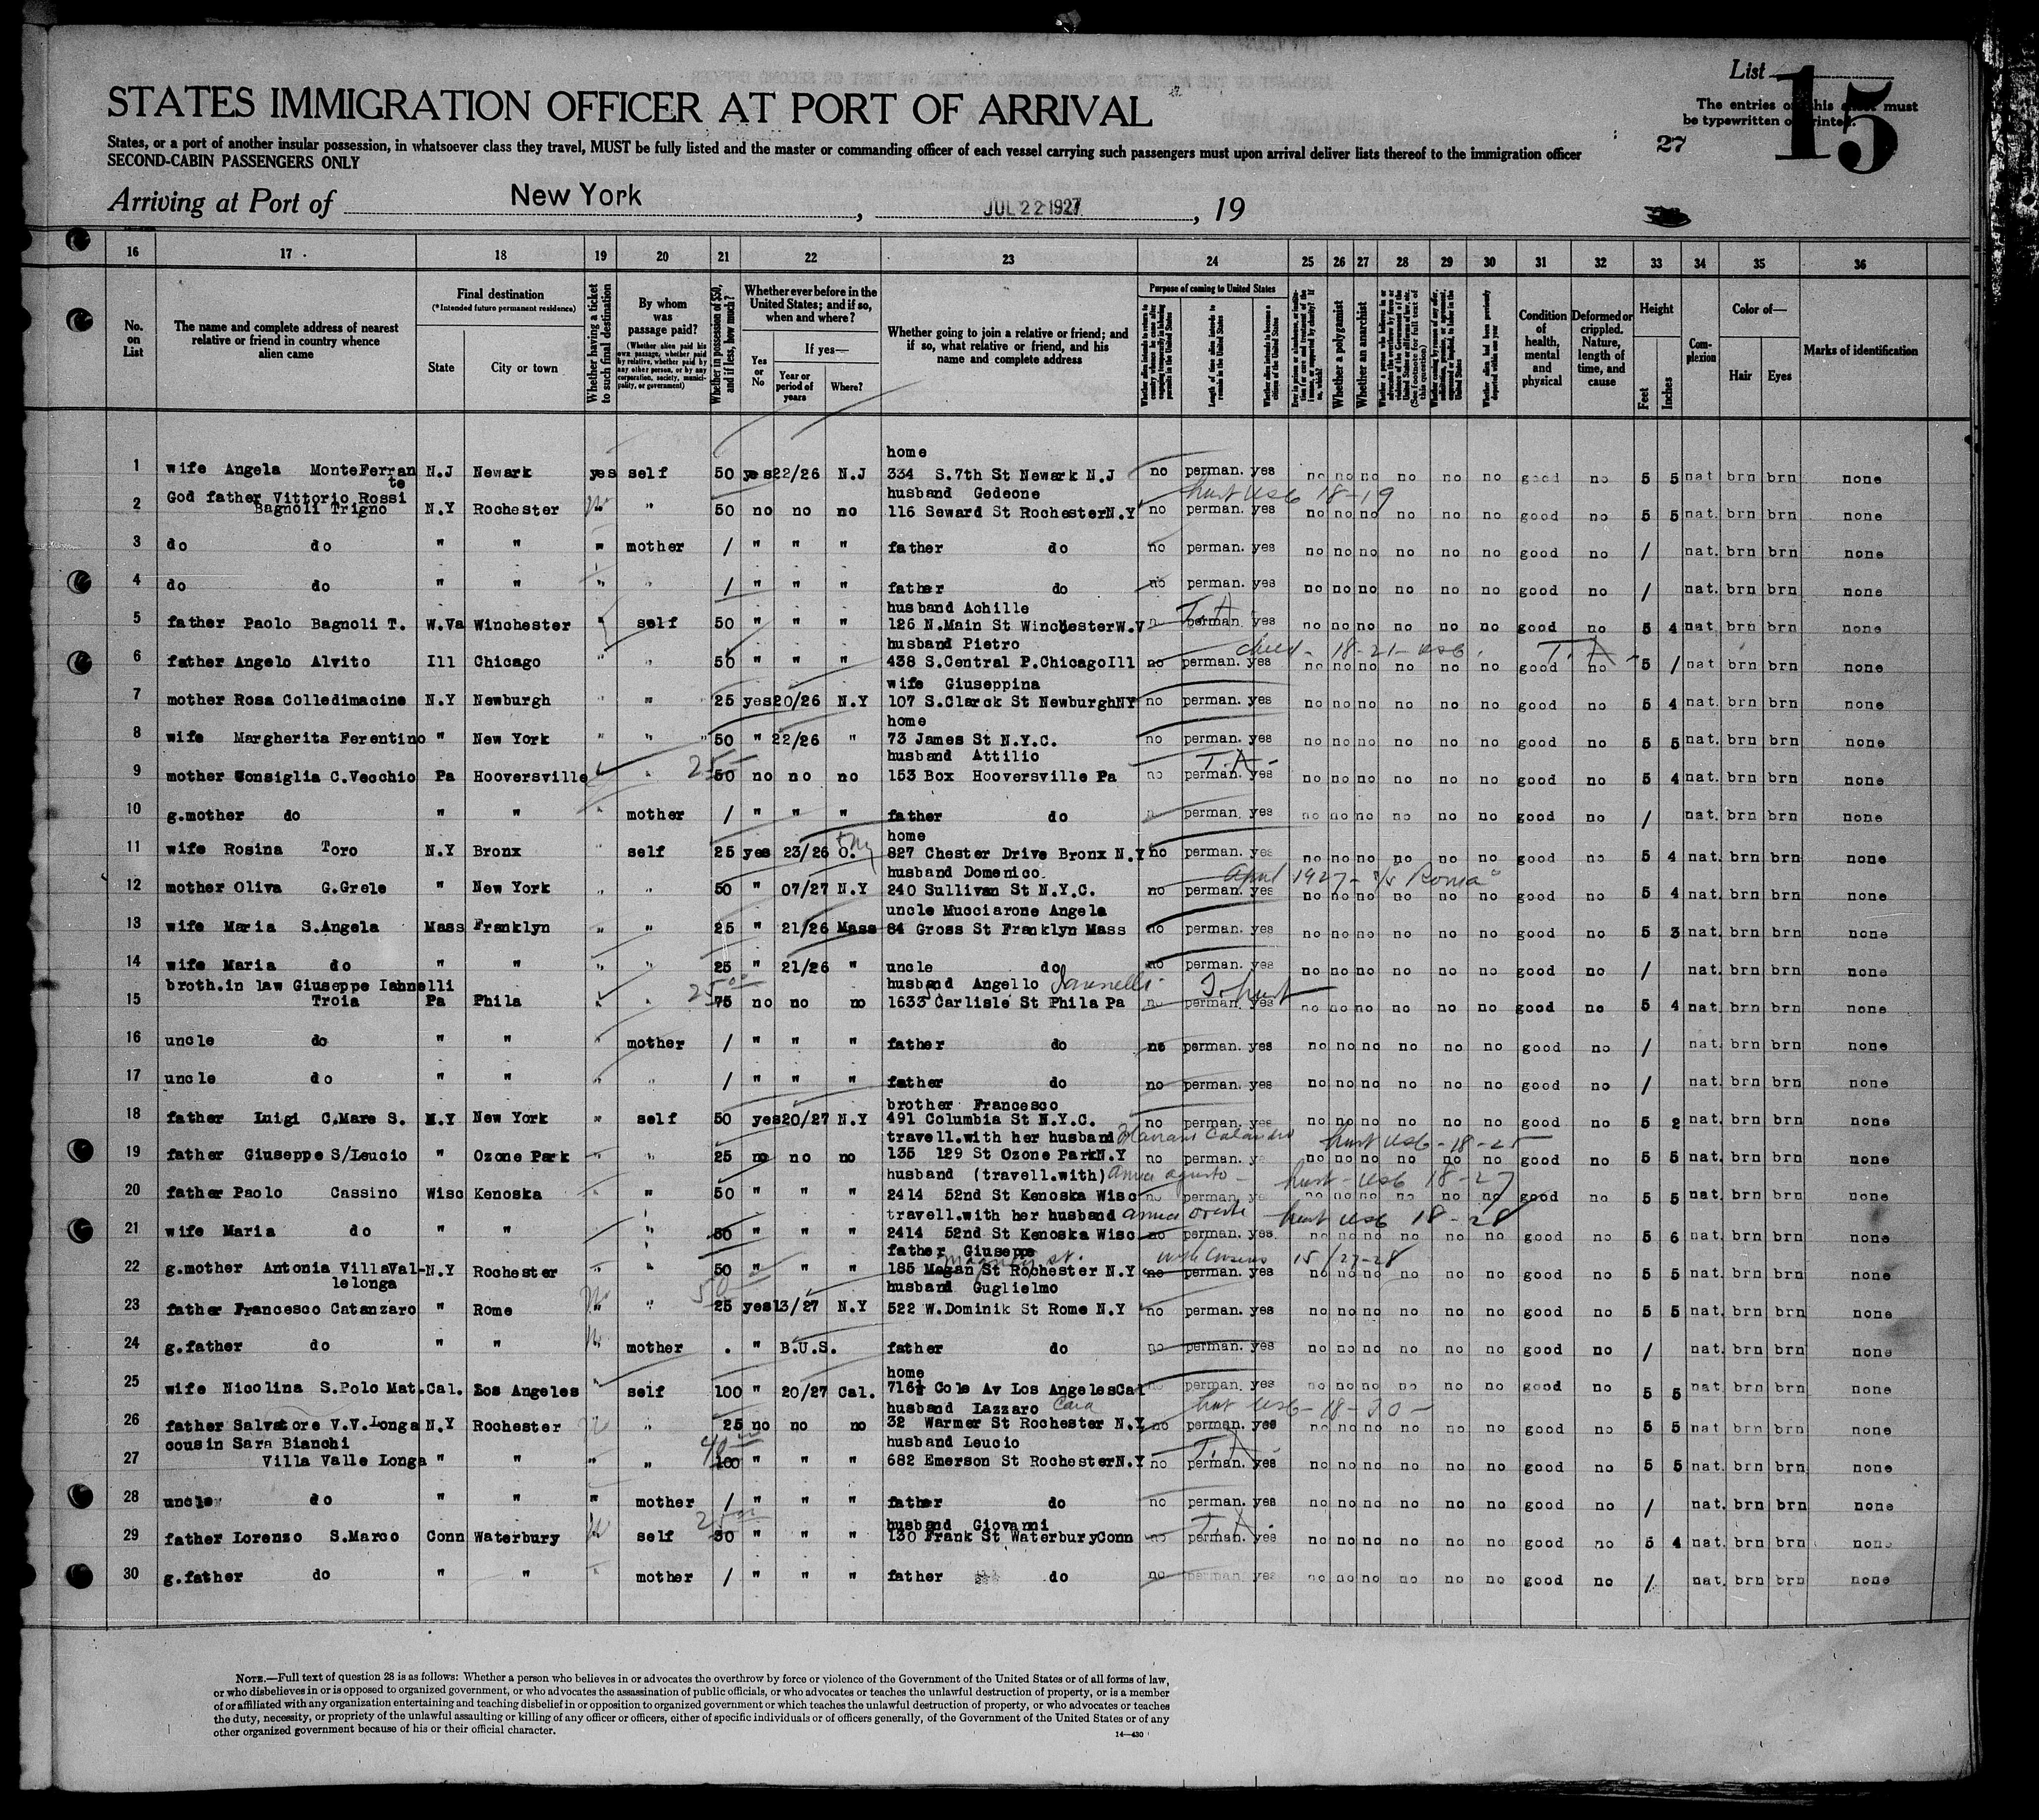 List 15
STATES IMMIGRATION OFFICER AT PORT OF ARRIVAL
The entries on this sheet must
be typewritten or printed.
27
States, or a port of another insular possession, in whatsoever class they travel, MUST be fully listed and the master or commanding officer of each vessel carrying such passengers must upon arrival deliver lists thereof to the immigration officer
SECOND-CABIN PASSENGERS ONLY
Arriving at Port of New York, JUL 22 1927, 19
16 17 18 19 20 21 22 23 24 25 26 27 28 29 30 31 32 33 34 35 36
No. on List
The name and complete address of nearest relative or friend in country whence alien came
Final destination
(*Intended future permanent residence)
State City or town
Whether having a ticket to such final destination
By whom was passage paid?
(Whether alien paid his own passage, whether paid by relative, whether paid by any other person, or by any corporation, society, municipality, or government)
Whether in possession of $50, and if less, how much?
Whether ever before in the United States; and if so, when and where?
Yes or No
If yes—
Year or period of years Where?
Whether going to join a relative or friend; and if so, what relative or friend, and his name and complete address
Purpose of coming to United States
Length of time alien intends to remain in the United States
Whether alien intends to become a citizen of the United States
Whether a polygamist
Whether an anarchist
Condition of health, mental and physical
Deformed or crippled. Nature, length of time, and cause
Height
Feet Inches
Complexion
Color of—
Hair Eyes
Marks of identification
home
1 wife Angela MonteFerrante N.J Newark yes self 50 yes 22/26 N.J 334 S.7th St Newark N.J no perman. yes no no no no no no good no 5 5 nat brn brn none
God father Vittorio Rossi husband Gedeone
2 Bagnoli Trigno N.Y Rochester " 50 no no no 116 Seward St Rochester N.Y no perman. yes no no no no no no good no 5 5 nat. brn brn none
3 do do " " " mother / " " " father do no perman. yes no no no no no no good no / nat. brn brn none
4 do do " " " " / " " " father do no perman. yes no no no no no no good no / nat. brn brn none
husband Achille
5 father Paolo Bagnoli T. W.Va Winchester " self 50 " " " 126 N.Main St Winchester W.V no perman. yes no no no no no no good no 5 4 nat brn brn none
husband Pietro
6 father Angelo Alvito Ill Chicago " " 50 " " " 438 S.Central P.Chicago Ill no perman. yes no no no no no no good no 5 / nat brn brn none
wife Giuseppina
7 mother Rosa Colledimacine N.Y Newburgh " " 25 yes 20/26 N.Y 107 S.Clarck St Newburgh NY no perman. yes no no no no no no good no 5 4 nat. brn brn none
home
8 wife Margherita Ferentino " New York " " 50 " 22/26 " 73 James St N.Y.C. no perman. yes no no no no no no good no 5 5 nat. brn brn none
husband Attilio T.A.
9 mother Consiglia C.Vecchio Pa Hooversville " 25 50 no no no 153 Box Hooversville Pa no perman. yes no no no no no no good no 5 4 nat. brn brn none
10 g.mother do " " " mother / " " " father do perman. yes no no no no no no good no / nat. brn brn none
home
11 wife Rosina Toro N.Y Bronx self 25 yes 23/26 827 Chester Drive Bronx N.Y no perman. yes no no no no no no good no 5 4 nat. brn brn none
husband Domenico. April 1927 - s/s Roma
12 mother Oliva G.Grele " New York " " 50 " 07/27 N.Y 240 Sullivan St N.Y.C. no perman. yes no no no no no no good no 5 4 nat. brn brn none
uncle Mucciarone Angela
13 wife Maria S.Angela Mass Franklyn " " 25 " 21/26 Mass 84 Gross St Franklyn Mass no perman. yes no no no no no no good no 5 3 nat. brn brn none
14 wife Maria do " " " " 25 " 21/26 " uncle do no perman. yes no no no no no no good no / nat. brn brn none
broth.in law Giuseppe Iahnelli husband Angello Iannelli
15 Troia Pa Phila " 25 75 no no no 1633 Carlisle St Phila Pa no perman. yes no no no no no no good no 5 4 nat. brn brn none
16 uncle do " " " mother / " " " father do no perman. yes no no no no no no good no / nat. brn brn none
17 uncle do " " " " / " " " father do no perman. yes no no no no no no good no / nat. brn brn none
brother Francesco
18 father Luigi C.Mare S. N.Y New York " self 50 yes 20/27 N.Y 491 Columbia St N.Y.C. no perman. yes no no no no no no good no 5 2 nat. brn brn none
travell.with her husband
19 father Giuseppe S/Leucio " Ozone Park " " 25 no no no 135 129 St Ozone Park N.Y no perman. no no no no no no good no 5 5 nat. brn brn none
husband (travell.with)
20 father Paolo Cassino Wisc Kenoska " 50 " " " 2414 52nd St Kenoska Wisc no perman. no no no no no no good no 5 5 nat. brn brn none
travell.with her husband
21 wife Maria do " " " 50 " " " 2414 52nd St Kenoska Wisc no perman. yes no no no no no no good no 5 6 nat. brn brn none
father Giuseppe
22 g.mother Antonia VillaVallelonga N.Y Rochester " " 50 " " " 185 Magan St Rochester N.Y no perman. yes no no no no no no good no 5 5 nat. brn brn none
husband Guglielmo
23 father Francesco Catanzaro " Rome " 50 25 yes 13/27 N.Y 522 W.Dominik St Rome N.Y no perman. yes no no no no no no good no 5 5 nat. brn brn none
24 g.father do " " mother . " B.U.S. father do no perman. yes no no no no no no good no / nat. brn brn none
home
25 wife Nicolina S.Polo Mat. Cal. Los Angeles " self 100 " 20/27 Cal. 716½ Cole Av Los Angeles Cal no perman. yes no no no no no no good no 5 5 nat. brn brn none
husband Lazzaro
26 father Salvatore V.V.Longa N.Y Rochester " 25 no no no 32 Warmer St Rochester N.Y no perman. yes no no no no no no good no 5 5 nat brn brn none
cousin Sara Bianchi husband Leucio
27 Villa Valle Longa " " " " 100 " " " 682 Emerson St Rochester N.Y no perman. yes no no no no no no good no 5 5 nat. brn brn none
28 uncle do " " " mother / " " " father do no perman. yes no no no no no no good no / nat. brn brn none
husband Giovanni
29 father Lorenzo S.Marco Conn Waterbury self 25 50 " " " 130 Frank St Waterbury Conn no perman. yes no no no no no no good no 5 4 nat. brn brn none
30 g.father do " " " mother / " " " father do no perman. yes no no no no no no good no / nat. brn brn none
NOTE.—Full text of question 28 is as follows: Whether a person who believes in or advocates the overthrow by force or violence of the Government of the United States or of all forms of law,
or who disbelieves in or is opposed to organized government, or who advocates the assassination of public officials, or who advocates or teaches the unlawful destruction of property, or is a member
of or affiliated with any organization entertaining and teaching disbelief in or opposition to organized government or which teaches the unlawful destruction of property, or who advocates or teaches
the duty, necessity, or propriety of the unlawful assaulting or killing of any officer or officers, either of specific individuals or of officers generally, of the Government of the United States or of any
other organized government because of his or their official character.
14—430